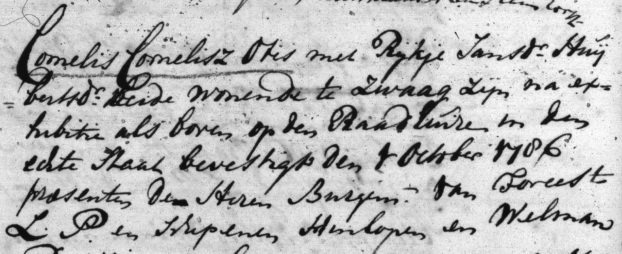 Cornelis Cornelisz Otes met Rijkje Jansdr Huij
= bertsdr. beide wonende te Zwaag zijn na ex=
hibitie als boven op den Raadhuize in den
echte Staat bevestigt den 1 October 1786
præsenten de Heren Burgem.r van Foreest
L. P en Schepenen Hinlopen en Welman